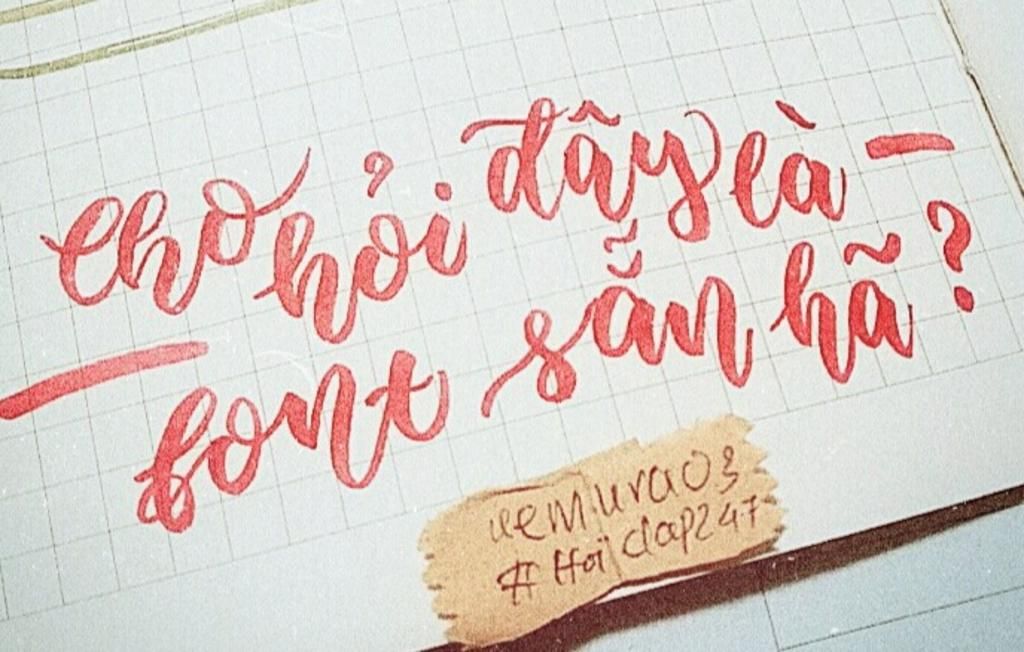 Cho hỏi đây là
font sẵn hã?
uemura03
#Hoidap247